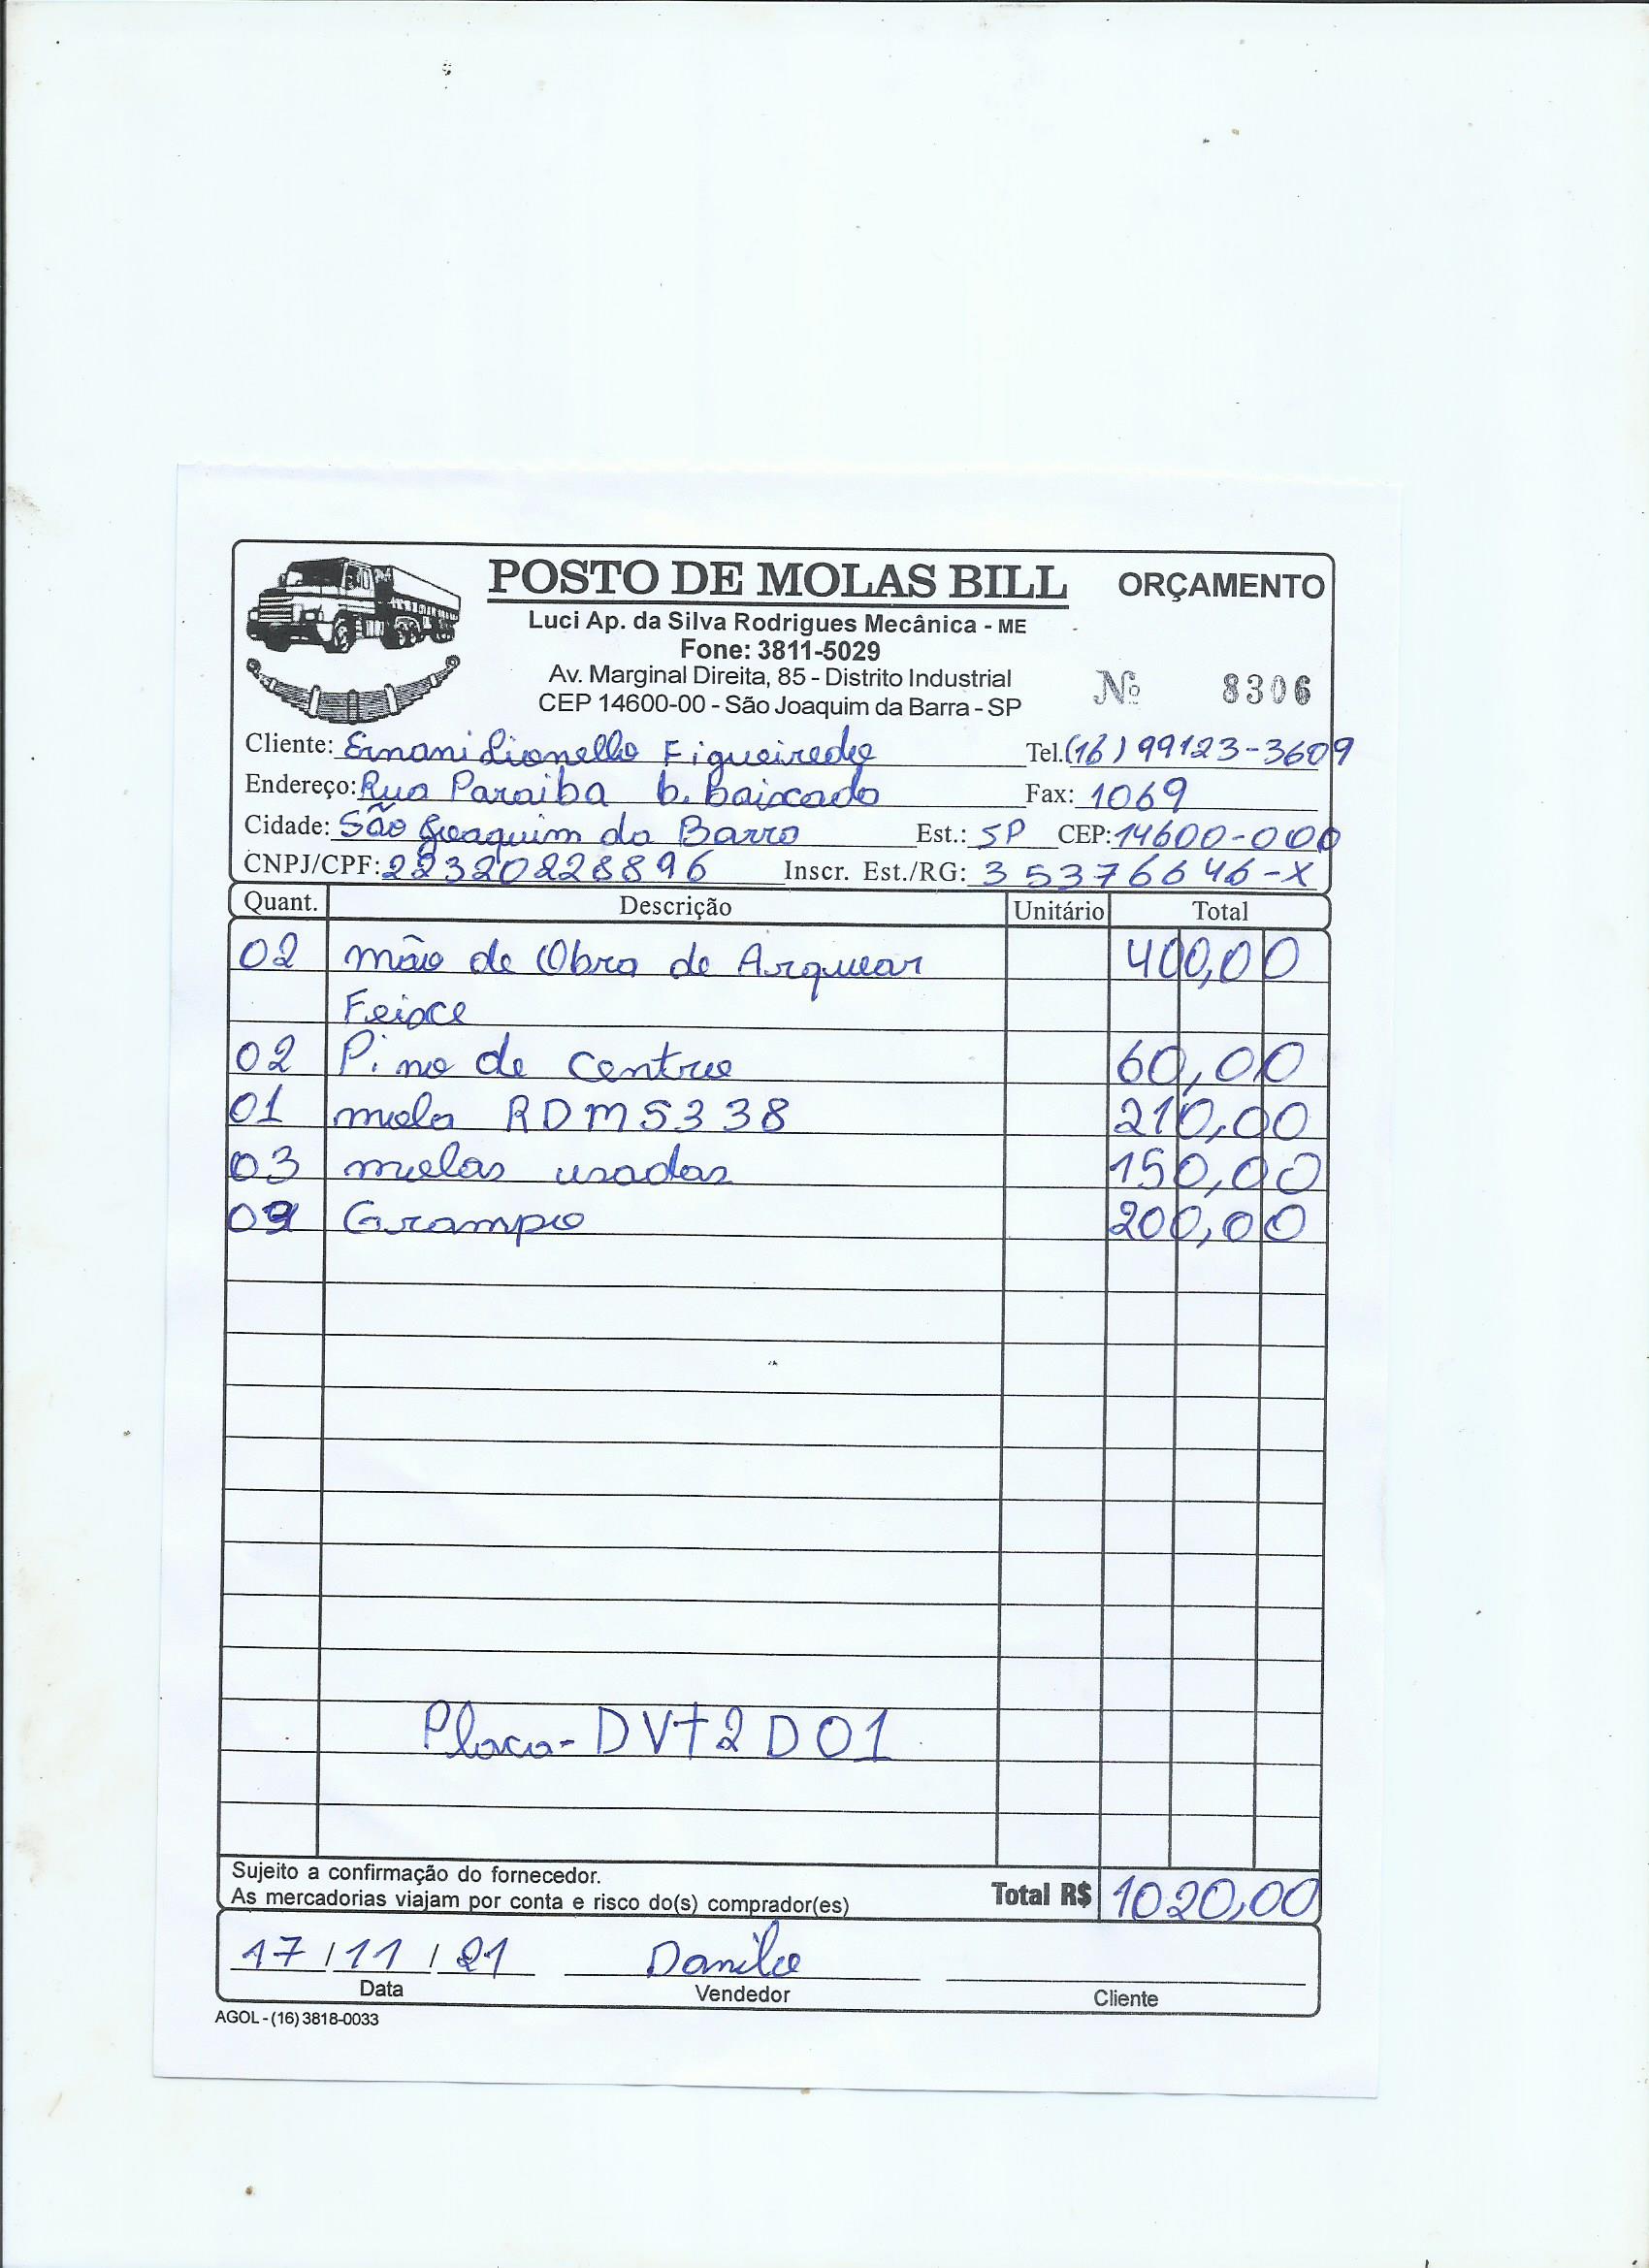 POSTO DE MOLAS BILL ORÇAMENTO
Luci Ap. da Silva Rodrigues Mecânica - ME
Fone: 3811-5029
Av. Marginal Direita, 85 - Distrito Industrial
CEP 14600-00 - São Joaquim da Barra - SP Nº 8306
Cliente: Ernani Lionello Figueiredo Tel.(16) 99123-3609
Endereço: Rua Paraiba b. baixada Fax: 1069
Cidade: São Joaquim da Barra Est.: SP CEP: 14600-000
CNPJ/CPF: 22320228896 Inscr. Est./RG: 35376646-X
Quant. Descrição Unitário Total
02 mão de Obra de Arquear 400,00
Feixe
02 Pino de Centro 60,00
01 mola RDM5338 210,00
03 molas usadas 150,00
Grampo 200,00
Placa - DVT2D01
Sujeito a confirmação do fornecedor.
As mercadorias viajam por conta e risco do(s) comprador(es) Total R$ 1020,00
17/11/21 Danilo
Data Vendedor Cliente
AGOL - (16) 3818-0033